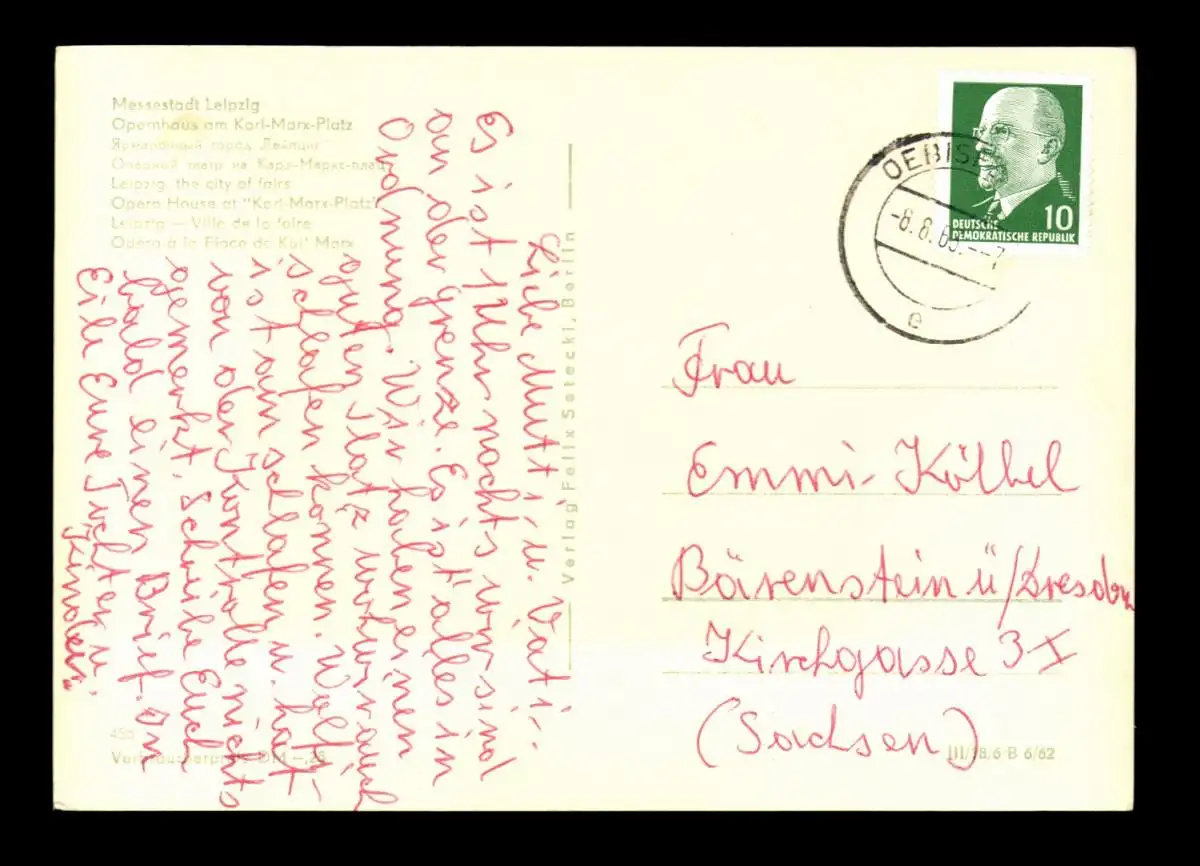 Messestadt Leipzig
Opernhaus am Karl-Marx-Platz
Ярмарочный город „Лейпциг“
Оперный театр на Карл-Маркс-плац
Leipzig, the city of fairs
Opera House at "Karl-Marx-Platz"
Leipzig — Ville de la foire
Opéra à la Place de Karl Marx
Liebe Mutti u. Vati.
Es ist 1 Uhr nachts wir sind
an der Grenze. Es ist alles in
Ordnung. Wir haben einen
guten Platz wo wir auch
schlafen können. Wolf
ist am schlafen u. hat
von der Kontrolle nichts
gemerkt. Schreibe Euch
bald einen Brief. In
Eile Eure Tochter u.
Kinder.
Verlag Felix Setecki, Berlin
455
Verbraucherpreis DM –,25
OEBISF
-8.8.63.--7
e
10
DEUTSCHE
DEMOKRATISCHE REPUBLIK
Frau
Emmi Kölbel
Bärenstein ü/Dresden
Kirchgasse 3 I
(Sachsen)
III/18/6 B 6/62